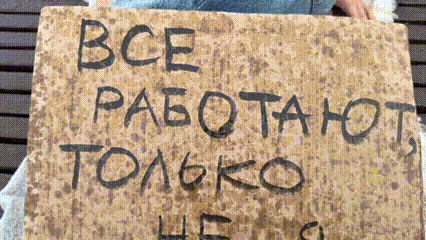 ВСЕ
РАБОТАЮТ,
ТОЛЬКО
НЕ Я